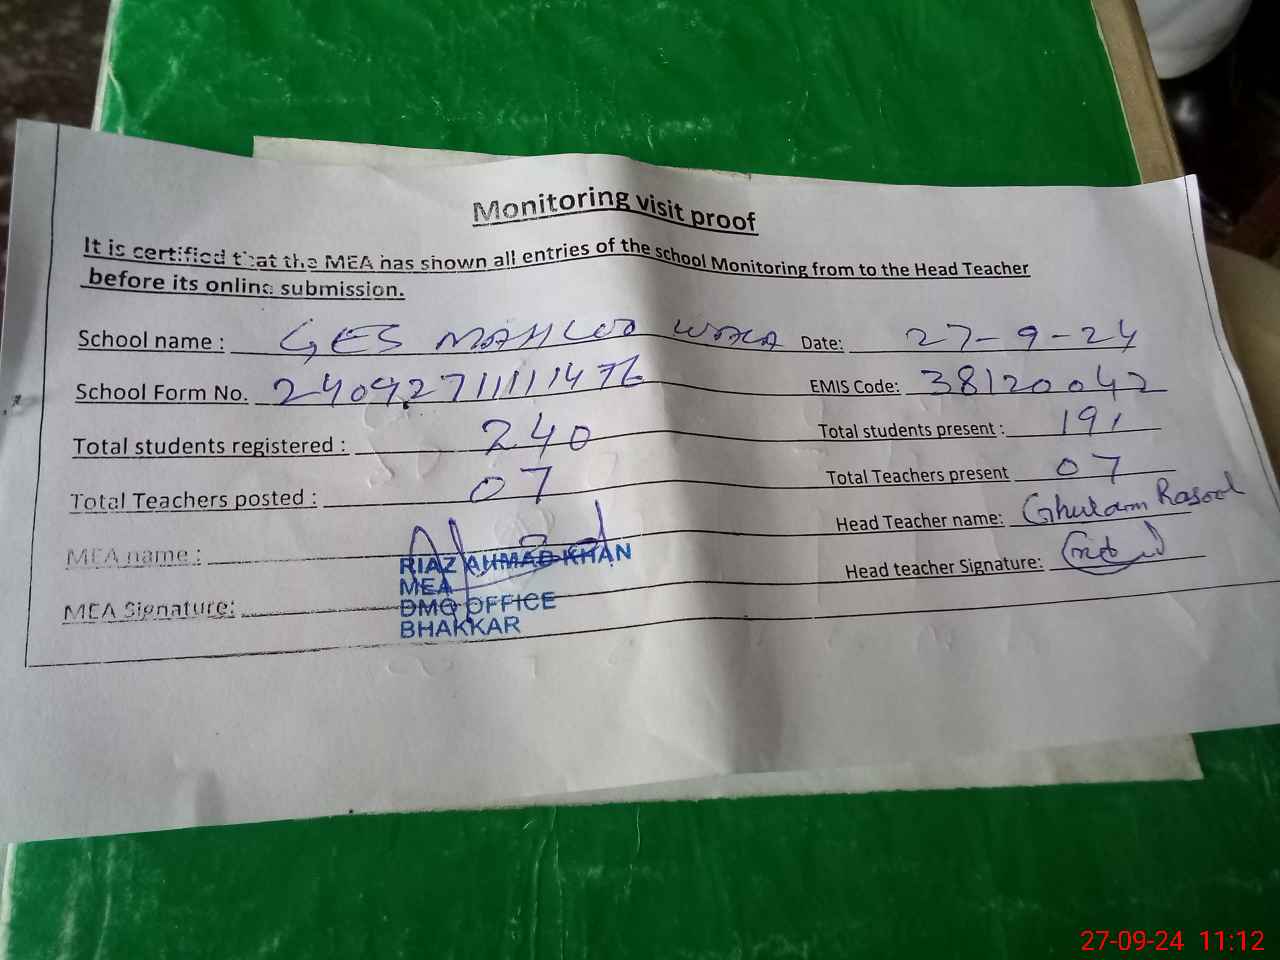 Monitoring visit proof
It is certified that the MEA has shown all entries of the school Monitoring from to the Head Teacher
before its online submission.
School name : GES MAHLOO WALA Date: 27-9-24
School Form No. 240927111111476 EMIS Code: 38120042
Total students registered : 240 Total students present : 191
Total Teachers posted : 07 Total Teachers present 07
MEA name : Head Teacher name: Ghulam Rasool
RIAZ AHMAD KHAN
MEA
MEA Signature: Head teacher Signature:
DMO OFFICE
BHAKKAR
27-09-24 11:12